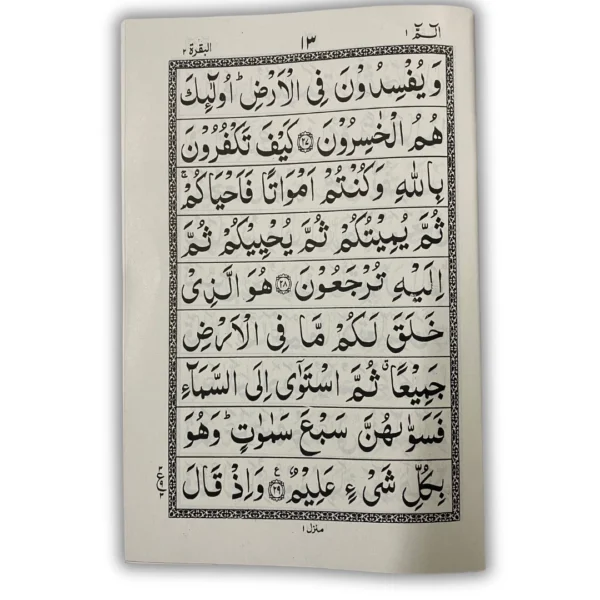 الٓمّٓ ١ ١٣ البقرة ٢
وَ يُفْسِدُوْنَ فِى الْاَرْضِ ؕ اُولٰٓئِكَ
هُمُ الْخٰسِرُوْنَ ۝٢٧ كَيْفَ تَكْفُرُوْنَ
بِاللّٰهِ وَكُنْتُمْ اَمْوَاتًا فَاَحْيَاكُمْ ۚ
ثُمَّ يُمِيْتُكُمْ ثُمَّ يُحْيِيْكُمْ ثُمَّ
اِلَيْهِ تُرْجَعُوْنَ ۝٢٨ هُوَ الَّذِىْ
خَلَقَ لَكُمْ مَّا فِى الْاَرْضِ
جَمِيْعًا ۗ ثُمَّ اسْتَوٰٓى اِلَى السَّمَآءِ
فَسَوّٰىهُنَّ سَبْعَ سَمٰوٰتٍ ؕ وَهُوَ
بِكُلِّ شَىْءٍ عَلِيْمٌ ۝٢٩ ع وَاِذْ قَالَ
منزل ١